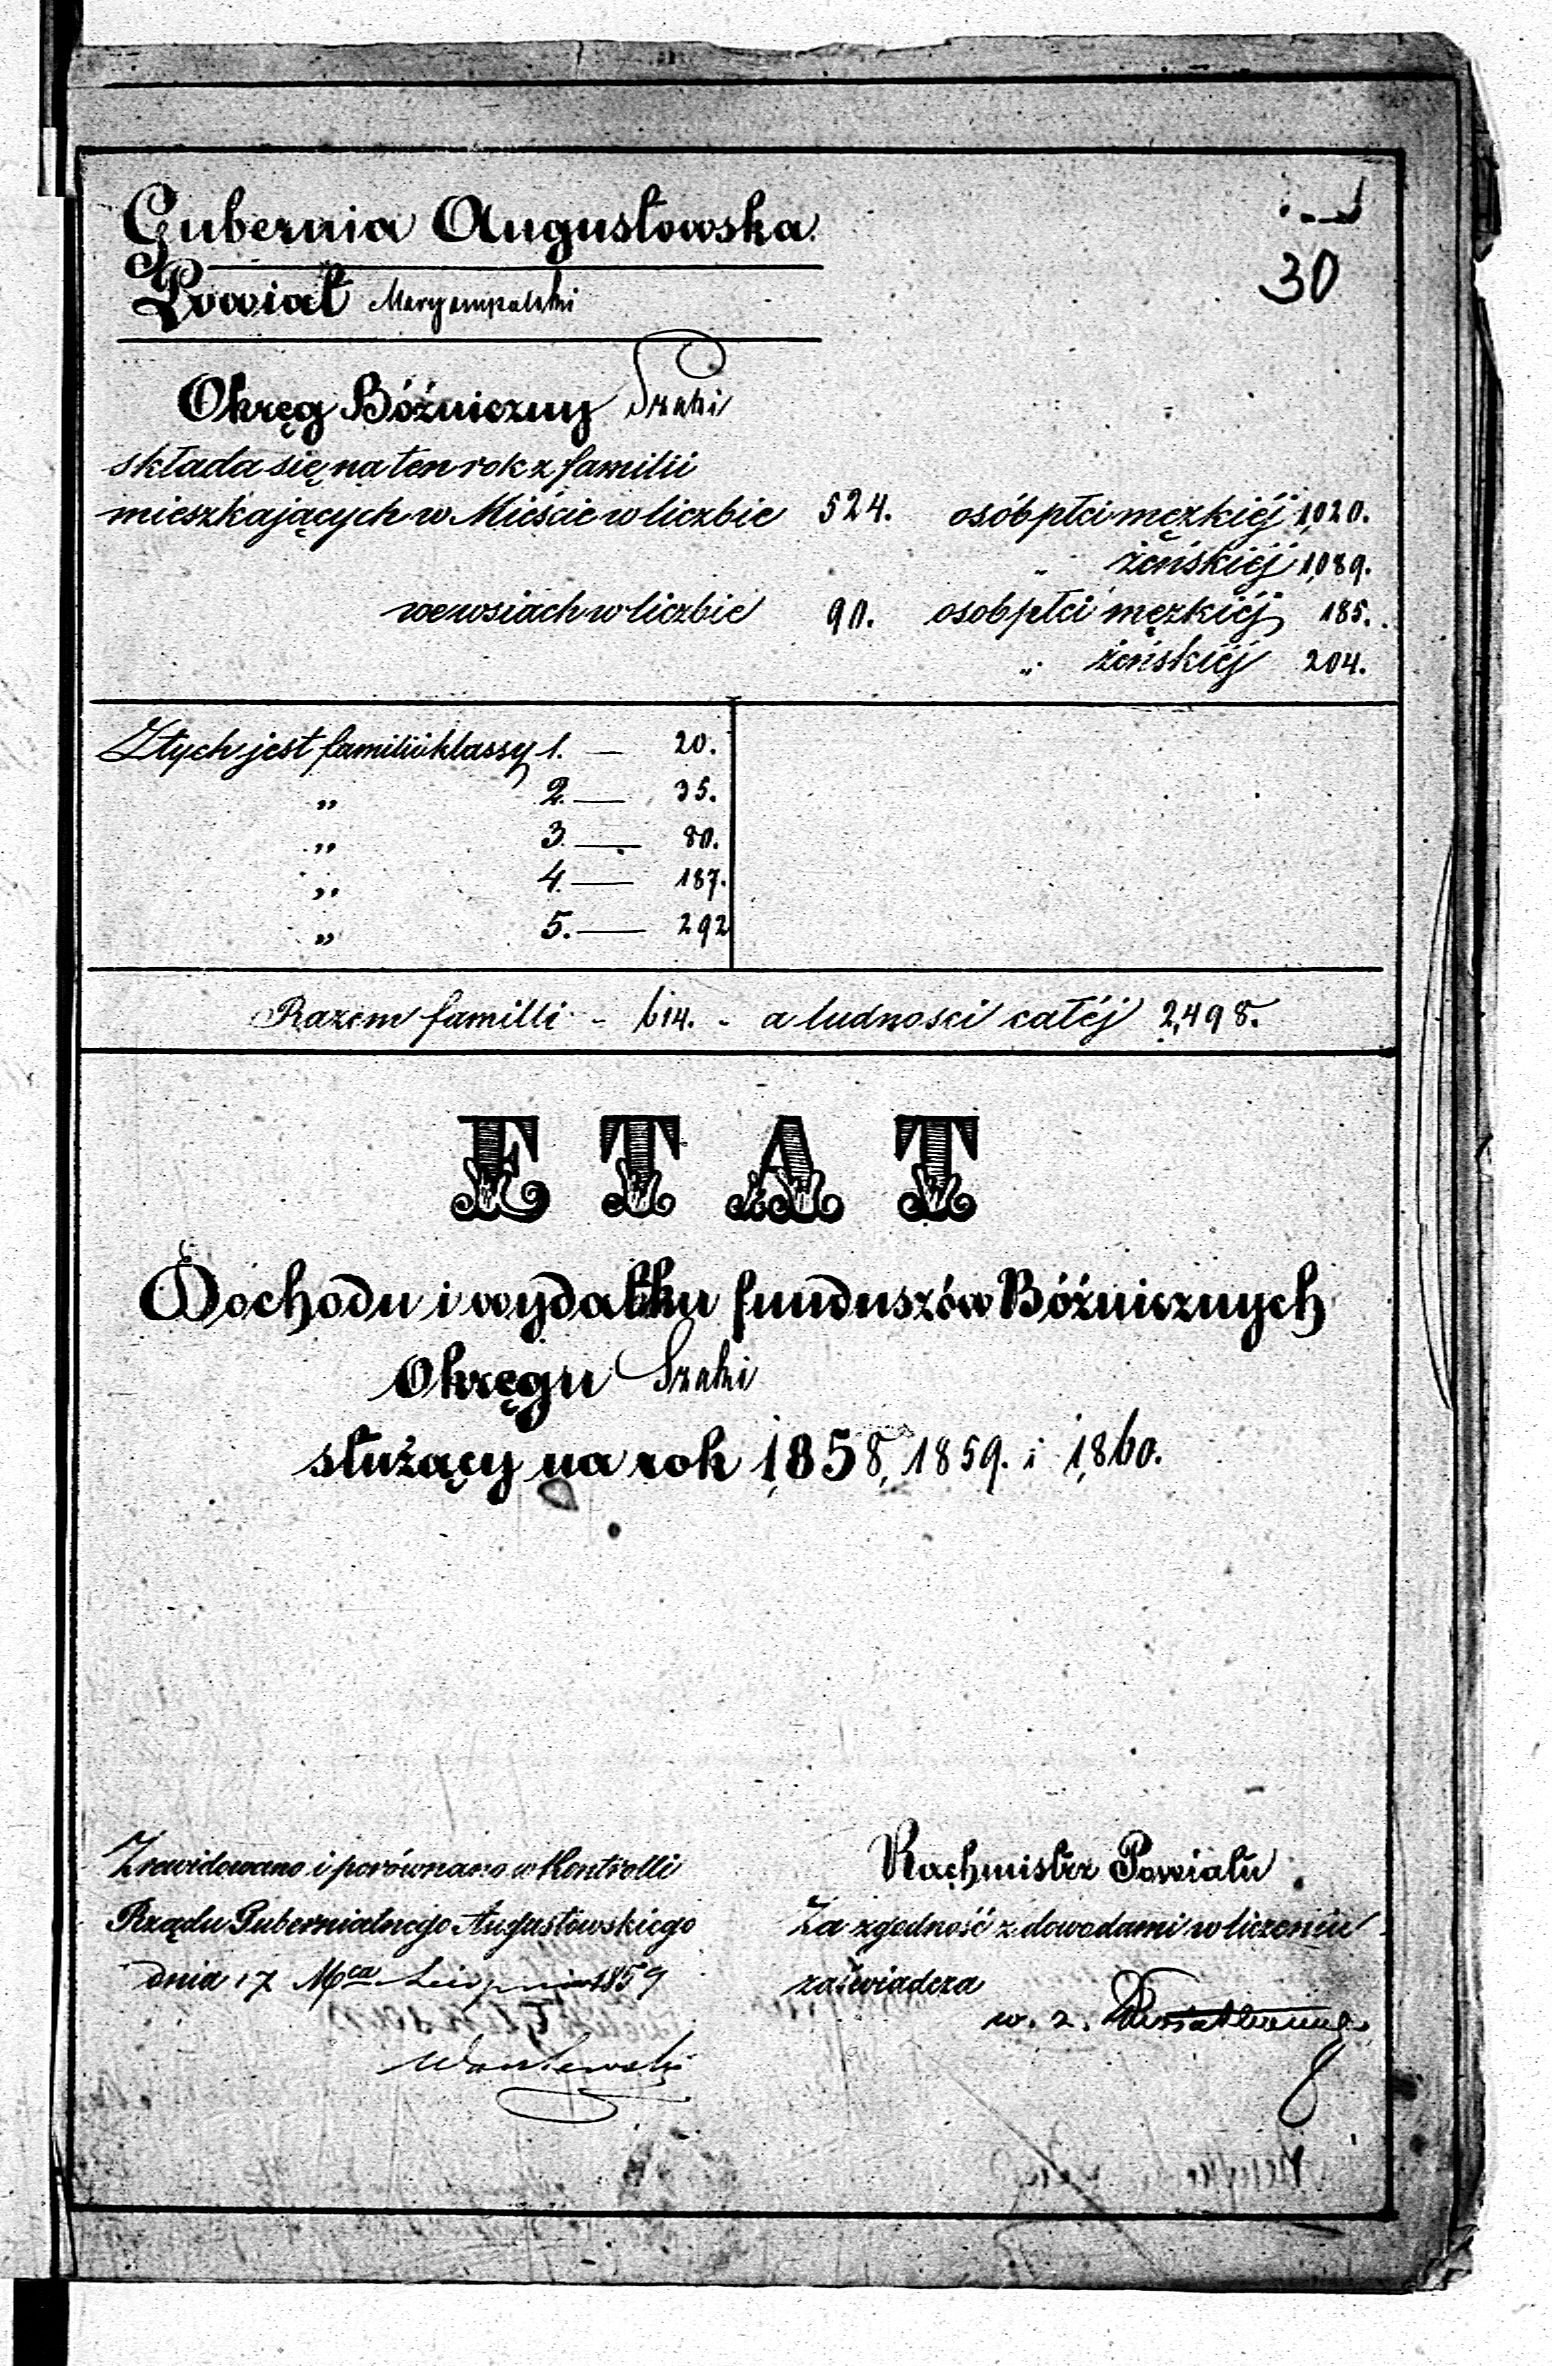 Gubernia Augustowska
30
Powiat Maryampolski
Okręg Bóżniczny Szaki
składa się na ten rok z familii
mieszkających w Mieście w liczbie 524. osób płci męzkiéj 1,020.
„ żeńskiéj 1,089.
we wsiach w liczbie 90. osob płci męzkiéj 185.
„ żeńskiéj 204.
Z tych jest familii klassy 1. — 20.
„ 2. — 35.
„ 3. — 80.
„ 4. — 187.
„ 5. — 292
Razem familii - 614. - a ludnosci całéj 2,498.
ETAT
Dochodu i wydatku funduszów Bóżnicznych
Okręgu Szaki
służący na rok 1858, 1859. i 1860.
Zrewidowano i porównano w Kontrolli
Rządu Gubernialnego Augustowskiego
dnia 17 Mca Sierpnia 1859
Rachmistrz Powiatu
Za zgodność z dowodami w liczeniu
zaświadcza
w. z.